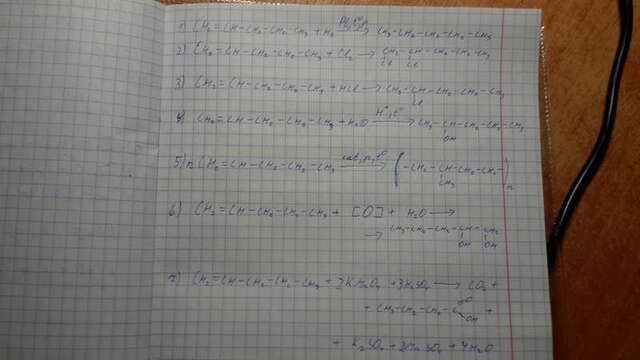 1) CH₂=CH-CH₂-CH₂-CH₃ + H₂ → CH₃-CH₂-CH₂-CH₂-CH₃
2) CH₂=CH-CH₂-CH₂-CH₃ + Cl₂ → CH₂-CH-CH₂-CH₂-CH₃
Cl Cl
3) CH₂=CH-CH₂-CH₂-CH₃ + HCl → CH₃-CH-CH₂-CH₂-CH₃
Cl
4) CH₂=CH-CH₂-CH₂-CH₃ + H₂O H⁺, t° → CH₃-CH-CH₂-CH₂-CH₃
OH
5) n CH₂=CH-CH₂-CH₂-CH₃ kat, p, t° → (-CH₂-CH-CH₂-CH₂-)n
CH₃
6) CH₂=CH-CH₂-CH₂-CH₃ + [O] + H₂O →
→ CH₃-CH₂-CH₂-CH-CH₂
OH OH
7) CH₂=CH-CH₂-CH₂-CH₃ + 2KMnO₄ + 3H₂SO₄ → CO₂ +
+ CH₃-CH₂-CH₂-C=O OH +
+ K₂SO₄ + 2MnSO₄ + 4H₂O